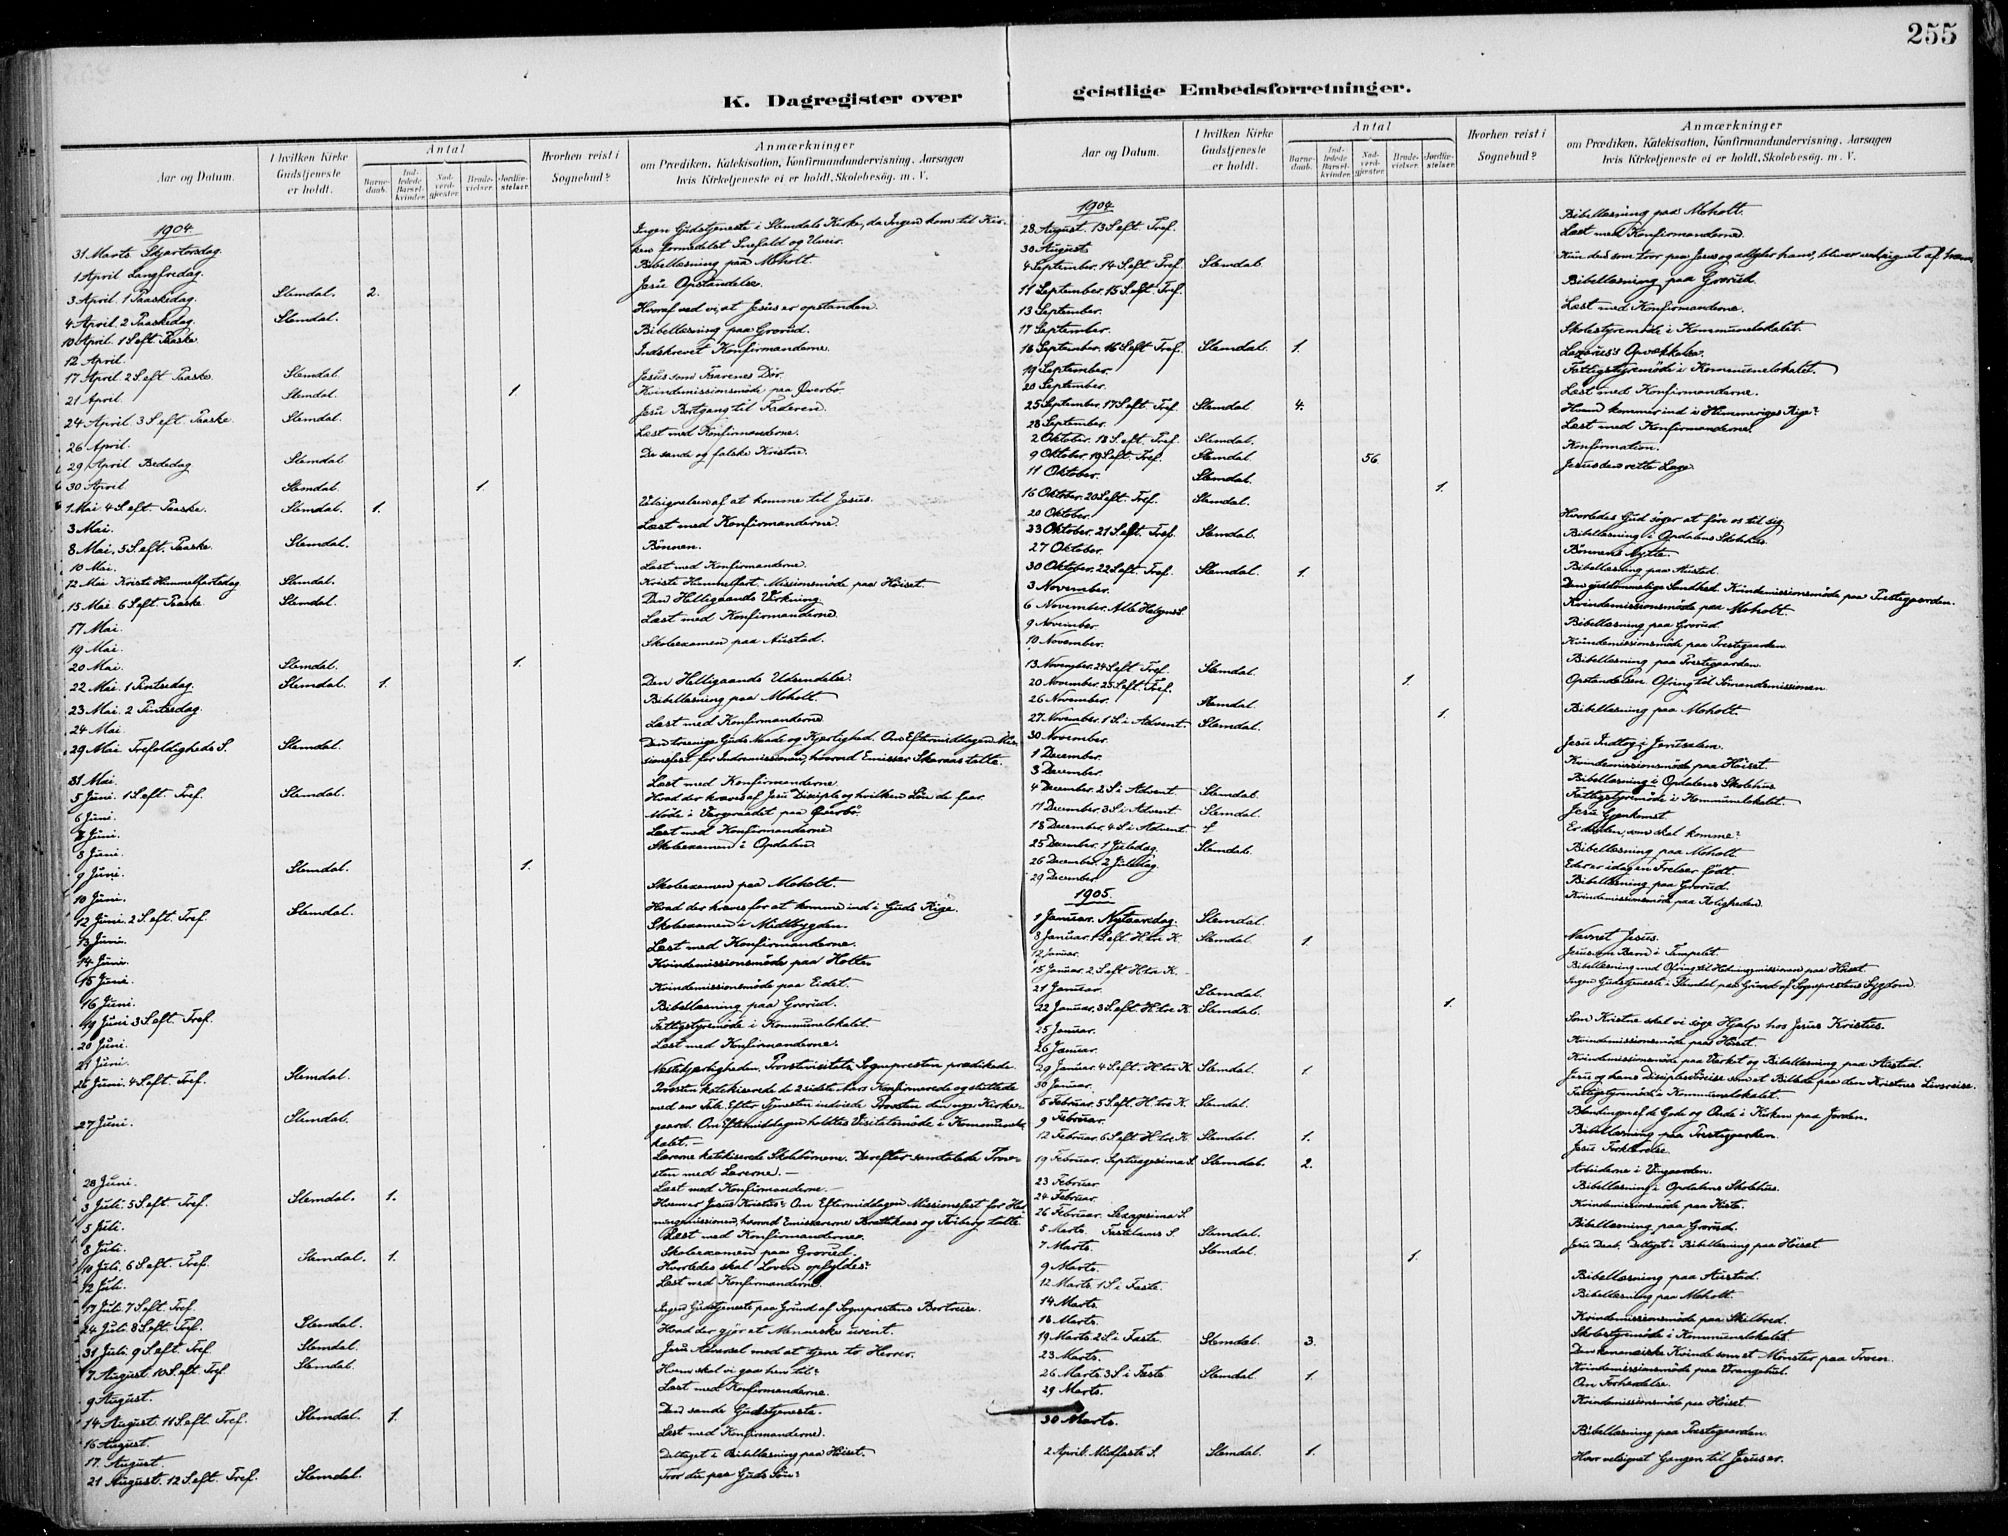 255
K. Dagregister over geistlige Embedsforretninger.
Aar og Datum.
I hvilken Kirke Gudstjeneste er holdt.
Antal
Barne-daab.
Ind-ledede Barsel-kvinder.
Nad-verd-gjester.
Brude-vielser.
Jordfæ-stelser.
Hvorhen reist i Sognebud?
Anmærkninger
om Prædiken, Katekisation, Konfirmandundervisning, Aarsagen
hvis Kirketjeneste ei er holdt, Skolebesøg. m. V.
1904
31 Marts Skjærtorsdag. Ingen Gudstjeneste i Slemdals Kirke, da Ingen kom til Kir-
ken formedelst Snefald og Uveir.
1 April Langfredag. Bibellæsning paa Moholt.
3 April. 1 Paaskedag. Slemdal. 2. Jesu Opstandelse.
4 April. 2 Paaskedag. Slemdal. Hvoraf ved vi, at Jesus er opstanden.
10 April. 1 S. eft. Paaske. Bibellæsning paa Grorud.
12 April. Indskrevet Konfirmanderne.
17 April 2 S. eft. Paaske. Slemdal. Jesus som Faarenes Dør.
21 April. Slemdal. 1. Kvindemissionsmøde paa Øverbø.
24 April. 3 S. eft. Paaske. Slemdal. Jesu Bortgang til Faderen.
26 April. Læst med Konfirmanderne.
29 April. Bededag. Slemdal. De sande og falske Kristne.
30 April. Slemdal. 1.
1 Mai 4 S. eft. Paaske. Slemdal. 1. Velsignelsen af at komme til Jesus.
3 Mai. Læst med Konfirmanderne.
8 Mai. 5 S. eft. Paaske. Slemdal. Bønnen.
10 Mai. Læst med Konfirmanderne.
12 Mai Kristi Himmelfartsdag Slemdal. Kristi Himmelfart. Missionsmøde paa Høiset.
15 Mai 6 S. eft. Paaske. Slemdal. Den Helligaands Virkning.
17 Mai. Læst med Konfirmanderne.
19 Mai. Skoleexamen paa Austad.
20 Mai. Slemdal. 1.
22 Mai. 1 Pintsedag. Slemdal. 1. Den Helligaands Udsendelse.
23 Mai. 2 Pintsedag. Bibellæsning paa Moholt.
24 Mai. Læst med Konfirmanderne.
29 Mai. Trefoldigheds S. Slemdal. Den treenige Guds Naade og Kjærlighed. Om Eftermiddagen Mis-
sionsfest for Indremissionen, hvorved Emissær talte.
31 Mai. Læst med Konfirmanderne.
5 Juni. 1 S. eft. Tref. Slemdal. Hvad der kræves af Jesu Disciple og hvilken Løn de faar.
6 Juni. Møde i Vergeraadet paa Øverbø.
7 Juni. Læst med Konfirmanderne.
8 Juni. Skoleexamen i Opdalen.
9 Juni. Slemdal. 1.
10 Juni. Skoleexamen paa Moholt.
12 Juni. 2 S. eft. Tref. Slemdal. Hvad der kræves for at komme ind i Guds Rige.
13 Juni. Skoleexamen i Midtbygden.
14 Juni. Læst med Konfirmanderne.
15 Juni. Kvindemissionsmøde paa Holte.
16 Juni. Kvindemissionsmøde paa Eidet.
19 Juni 3 S. eft. Tref. Bibellæsning paa Grorud.
20 Juni. Fattigstyremøde i Kommunelokalet.
21 Juni. Læst med Konfirmanderne.
26 Juni. 4 S. eft. Tref. Slemdal. Næstekjærligheden. Provstevisitats. Sognepresten prædikede.
Provsten katekiserede de 2 sidste Aars Konfirmerede og sluttede
med en Tale. Efter Tjenesten indviede Provsten den nye Kirke-
gaard. Om Eftermiddagen holdtes Visitatsmøde i Kommunelo-
kalet.-
27 Juni. Slemdal. Lærerne katekiserede Skolebørnene. Derefter samtalede Prov-
sten med Lærerne.-
28 Juni. Læst med Konfirmanderne.-
3 Juli. 5 S. eft. Tref. Slemdal. 1. Hvem er Jesus Kristus? Om Eftermiddagen Missionsfest for Hed-
ningmissionen, hvorved Emissærerne og talte.
5 Juli. Læst med Konfirmanderne.
8 Juli. Skoleexamen paa Grorud.
10 Juli. 6 S. eft. Tref. Slemdal. 1. Hvorledes skal Loven opfyldes?
12 Juli. Læst med Konfirmanderne.
17 Juli. 7 S. eft. Tref. Ingen Gudstjeneste paa Grund af Sogneprestens Bortreise.
24 Juli. 8 S. eft. Tref. Slemdal. Hvad der gjør et Menneske urent.
31 Juli. 9 S. eft. Tref. Slemdal. Jesu Advarsel mod at tjene to Herrer.
7 August. 10 S. eft. Tref. Slemdal. Hvem skal vi gaa hen til?
9 August. Læst med Konfirmanderne.
14 August. 11 S. eft. Tref. Slemdal. 1. Den sande Gudstjeneste.
16 August. Læst med Konfirmanderne.
17 August. Deltaget i Bibellæsning paa Høiset.
21 August. 12 S. eft. Tref. Slemdal. Tror du paa Guds Søn?
Aar og Datum.
I hvilken Kirke Gudstjeneste er holdt.
Antal
Barne-daab.
Ind-ledede Barsel-kvinder.
Nad-verd-gjester.
Brude-vielser.
Jordfæ-stelser.
Hvorhen reist i Sognebud?
Anmærkninger
om Prædiken, Katekisation, Konfirmandundervisning, Aarsagen
hvis Kirketjeneste ei er holdt, Skolebesøg. m. V.
1904
28 August. 13 S. eft. Tref. Bibellæsning paa Moholt.
30 August. Læst med Konfirmanderne.
4 September. 14 S. eft. Tref. Slemdal. Kun den som tror paa Jesus og adlyder ham, bliver velsignet af ham.
11 September. 15 S. eft. Tref. Bibellæsning paa Grorud.
13 September. Læst med Konfirmanderne.
17 September. Skolestyremøde i Kommunelokalet.
18 September. 16 S. eft. Tref. Slemdal. 1. Lazarus's Opvækkelse.
19 September. Fattigstyremøde i Kommunelokalet.
20 September. Læst med Konfirmanderne.
25 September. 17 S. eft. Tref. Slemdal 4. Hvem kommer ind i Himmeriges Rige?
28 September. Læst med Konfirmanderne.
2 Oktober. 18 S. eft. Tref. Slemdal. Konfirmation.
9 Oktober. 19 S. eft. Tref. Slemdal. 56 Jesus den rette Læge.
11 Oktober. Slemdal. 1.
16 Oktober. 20 S. eft. Tref. Slemdal. Hvorledes Gud søger at føre os til sig.
20 Oktober. Bibellæsning i Opdalens Skolehus.
23 Oktober. 21 S. eft. Tref. Slemdal. Bønnens Nytte.
27 Oktober. Bibellæsning paa Austad.
30 Oktober. 22 S. eft. Tref. Slemdal. 1. Den guddommelige Sandhed. Kvindemissionsmøde paa Prestegaarden.
3 November. Kvindemissionsmøde paa Moholt.
6 November. Alle Helgens S. Bibellæsning paa Grorud.
9 November. Kvindemissionsmøde paa Prestegaarden.
10 November. Bibellæsning paa Prestegaarden.
13 November. 24 S. eft. Tref. Slemdal. Opstandelsen. Ofring til Sømandsmissionen.
20 November. 25 S. eft. Tref. 1. Bibellæsning paa Moholt.
26 November. Slemdal.
27 November. 1 S. i Advent. Slemdal. 1. Jesu Indtog i Jerusalem.
30 November. Kvindemissionsmøde paa Høiset.
1 December. Bibellæsning i Opdalens Skolehus.
3 December. Fattigstyremøde i Kommunelokalet.
4 December. 2 S. i Advent. Slemdal. Jesu Gjenkomst.
11 December. 3 S. i Advent. Slemdal. Er du den, som skal komme?
18 December. 4 S. i Advent. Bibellæsning paa Moholt.
25 December. 1 Juledag. Slemdal. Eder er idag en Frelser født.
26 December. 2 Juledag. Bibellæsning paa Grorud.
29 December. Kvindemissionsmøde paa Roligheden.
1905.
1 Januar. Nytaarsdag. Slemdal. Navnet Jesus.
8 Januar. 1 S. eft. H. tre K. Slemdal. 1. Jesus som Barn i Templet.
12 Januar. Bibellæsning med Ofring til Hedningmissionen paa Høiset.
15 Januar. 2 S. eft. H. tre K. Ingen Gudstjeneste i Slemdal paa Grund af Sogneprestens Sygdom.
21 Januar. Slemdal. 1.
22 Januar. 3 S. eft. H. tre K. Slemdal. Som Kristne skal vi søge Hjælp hos Jesus Kristus.
25 Januar. Kvindemissionsmøde paa Høiset.
26 Januar. Kvindemissionsmøde paa Værket og Bibellæsning paa Austad.
29 Januar. 4 S. eft. H. tre K. Slemdal. 1 Jesu og hans Disciples Søreise som et Billede paa den Kristnes Livsreise.
30 Januar. Fattigstyremøde i Kommunelokalet.
5 Februar. 5 S. eft. H. tre K. Slemdal. Blandingen af de Gode og Onde i Kirken paa Jorden.
9 Februar. Bibellæsning paa Prestegaarden.
12 Februar. 6 S. eft. H. tre K. Slemdal. 1. Jesu Forklarelse.
19 Februar. Septuagesima S. Slemdal. 2. Arbeiderne i Vingaarden.
23 Februar. Bibellæsning i Opdalens Skolehus.
24 Februar. Kvindemissionsmøde paa Kiste.
26 Februar. Sexagesima S. Bibellæsning paa Grorud.
5 Marts. Fastelavns S. Slemdal. Jesu Daab. Deltaget i Bibellæsning paa Høiset.
7 Marts. Slemdal. 1.
9 Marts. Bibellæsning paa Austad.
12 Marts. 1 S. i Faste. Bibellæsning paa Moholt.
14 Marts. Kvindemissionsmøde paa Skilbred.
18 Marts. Skolestyremøde i Kommunelokalet.
19 Marts. 2 S. i Faste. Slemdal. 3. Den kananæiske Kvinde som et Mønster paa Troen.
23 Marts. Kvindemissionsmøde paa
26 Marts. 3 S. i Faste. Slemdal. 1. Om Forhærdelse.
29 Marts. Kvindemissionsmøde paa Høiset.
30 Marts. Bibellæsning paa Prestegaarden.
2 April. Midfaste S. Slemdal. 1. Hvor velsignet Gangen til Jesus er.